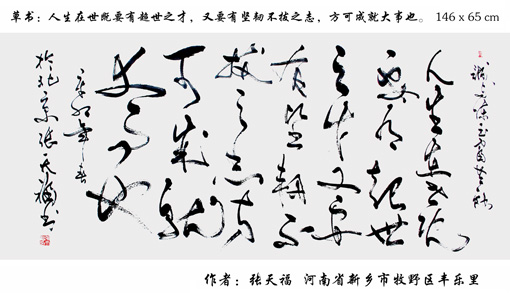 草书：人生在世既要有超世之才，又要有坚韧不拔之志，方可成就大事也。 146 x 65 cm
人生在世既
要有超世
之才又要
有坚韧不
拔之志方
可成就
大事也
於北京张天福书
作者：张天福 河南省新乡市牧野区丰乐里